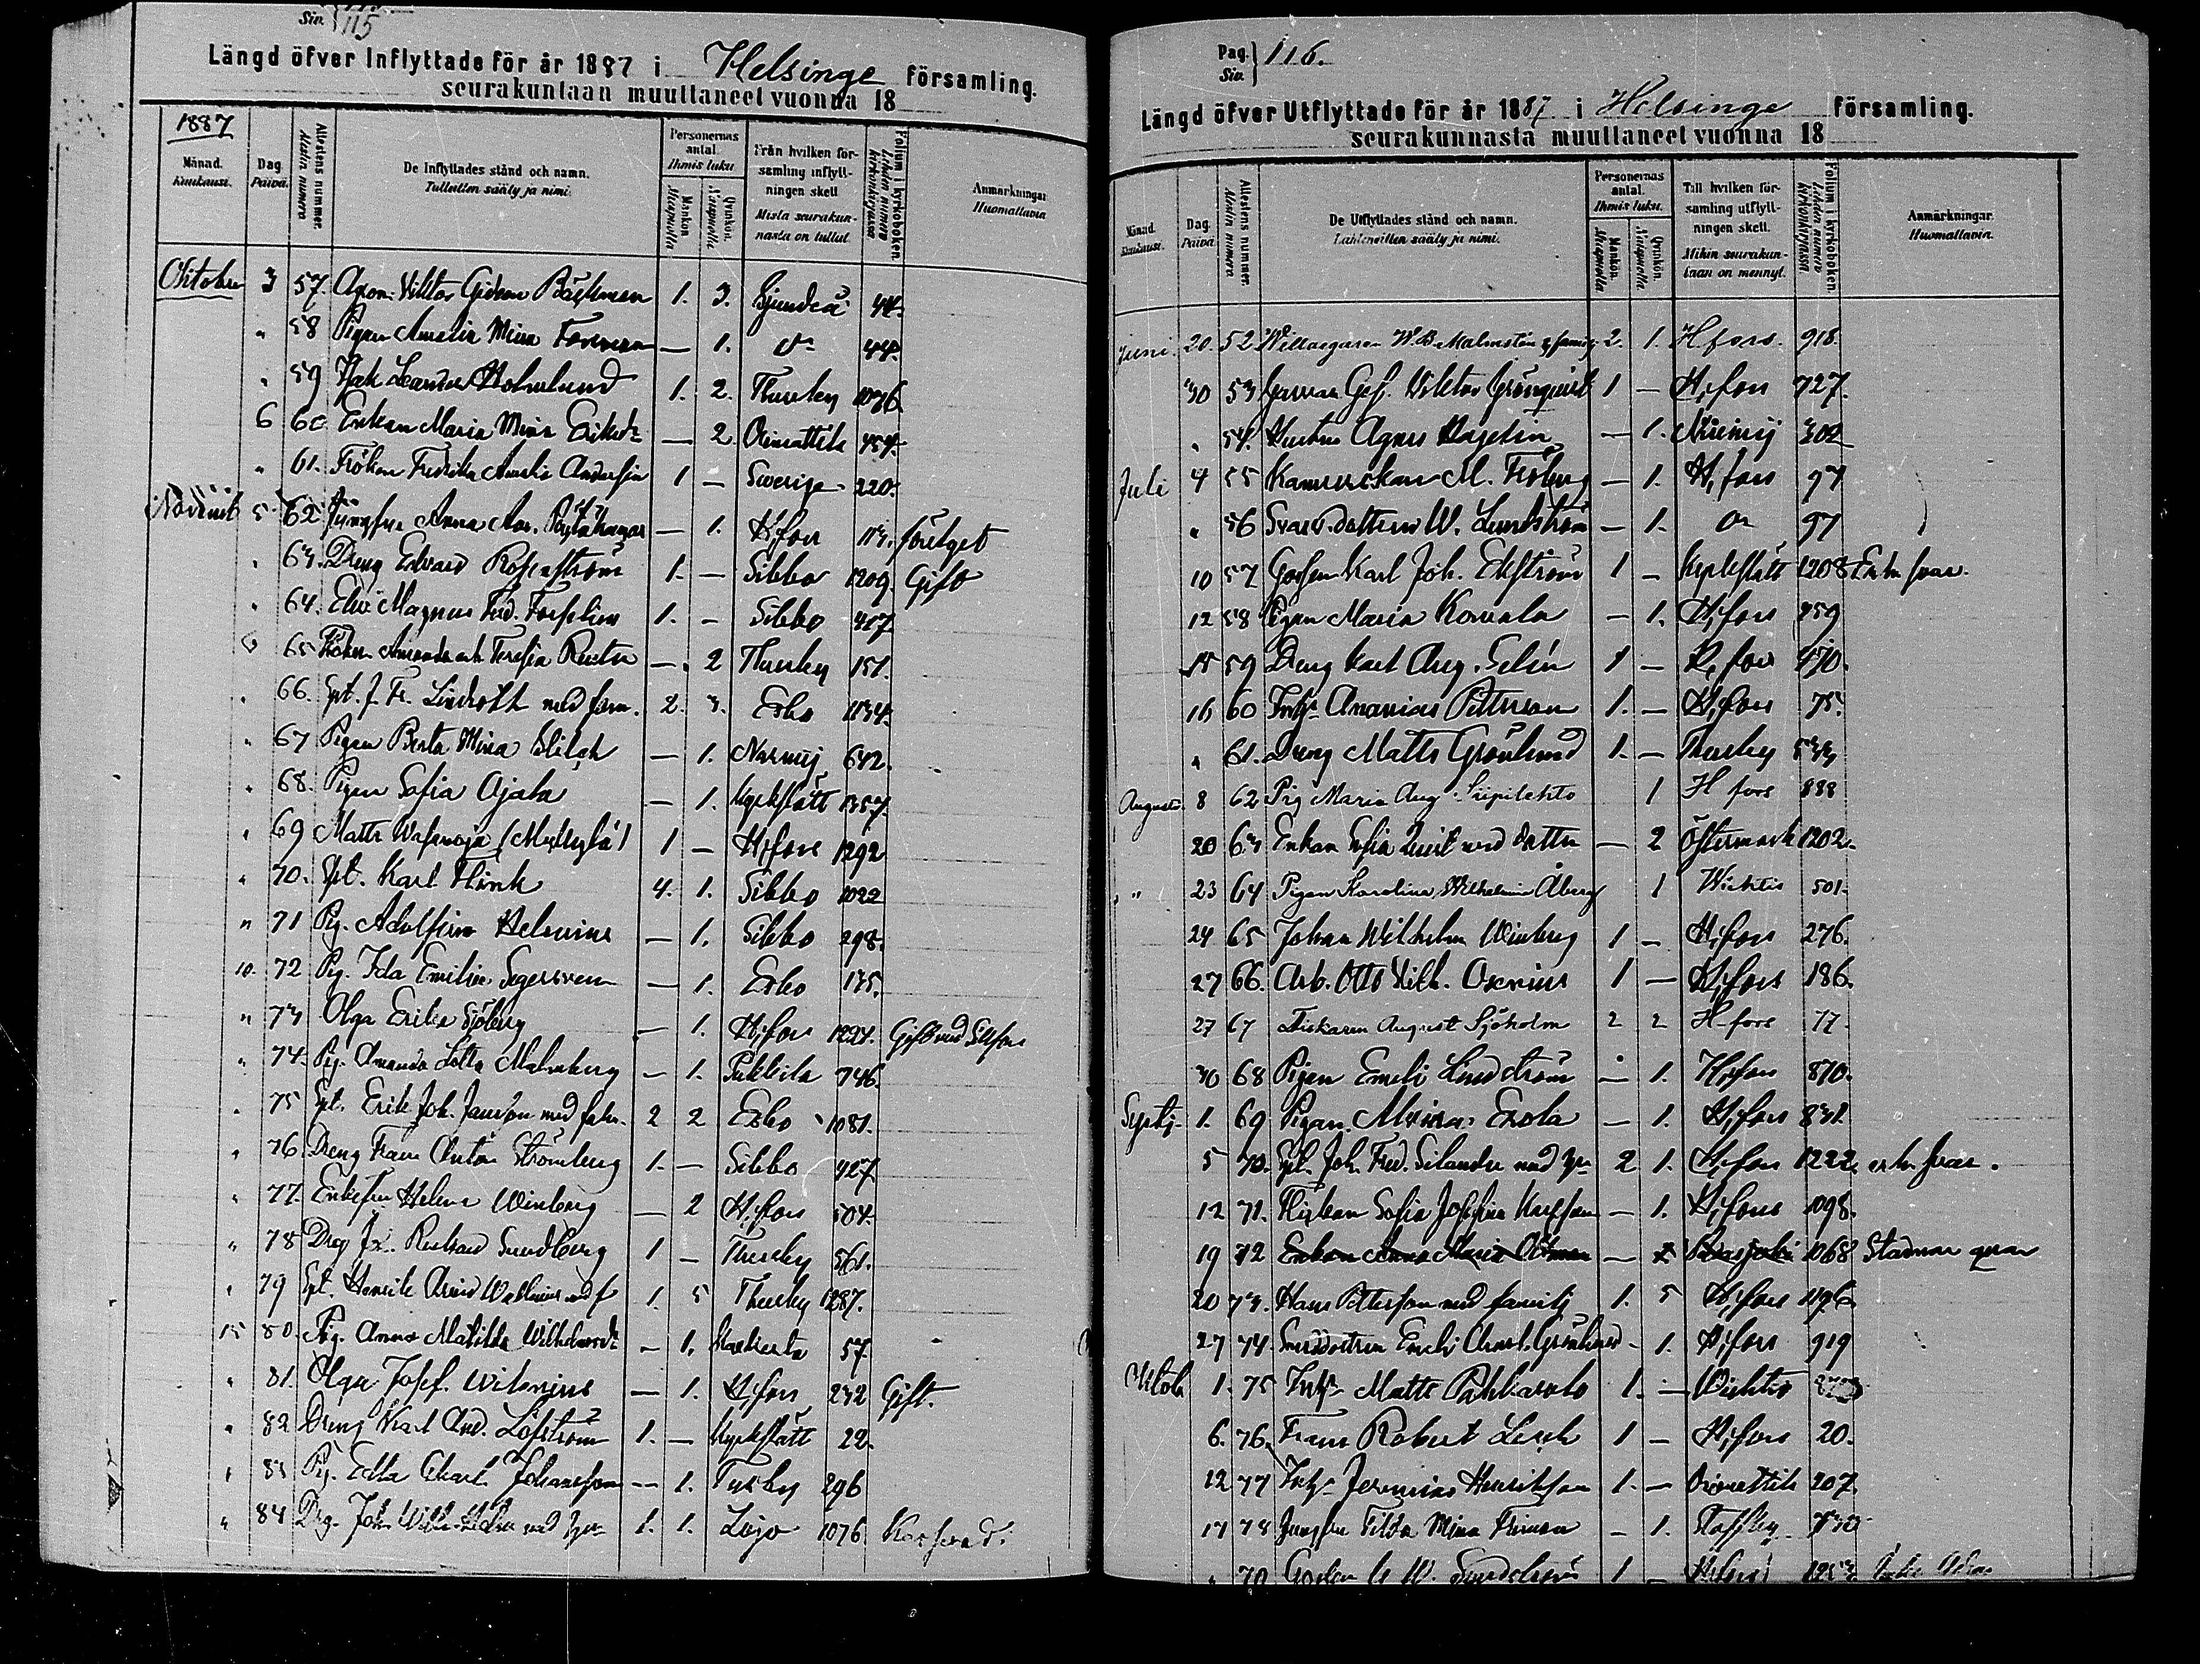 Siv. 115
Längd öfver Inflyttade för år 1887 i Helsinge församling.
seurakuntaan muuttaneet vuonna 18
1887
Månad. Kuukausi.
Dag. Päivä.
Attestens nummer. Atestin numero
De Inflyttades stånd och namn.
Tulleitten sääty ja nimi.
Personernas antal.
Ihmis luku
Mankön. Miespuolia
Qvinkön. Naispuolia
Från hvilken församling inflyttningen skett
Mista seurakunnasta on tullut.
Folium i kyrkoboken.
Lehden numero kirkonkirjassa
Anmärkningar
Huomattavia
Oktober 3 57. Agron. Viktor Gideon Bäckman 1. 3. Sjundeå 44.
" 58 Pigan Amalia Mina — 1. d:o 44.
" 59 Isak Leander Holmlund 1. 2. Thusby 1076
6 60 Enkan Maria Mina Eriksdr — 2 Orimattila 454.
" 61. Fröken Fredrika Amalia Andersin 1 — Sverige 220.
Novemb 5 62 Jungfru Anna — 1. H:fors 113.
" 63. Dreng Edvard Rosenström 1. — Sibbo 1209. Gift
" 64. Elev Magnus Fred. Forselius 1. — Sibbo 417.
65 Fröken Amanda och Teresia — 2 Thusby 151.
" 66. Spt. J. Fr. Lindroth med fam. 2. 3. Esbo 1134.
" 67 Pigan Berta Mina — 1. Nurmij 642.
" 68. Pigan Sofia Ojala — 1. Kyrkslätt 1357.
" 69 Matts 1 — H:fors 1292
" 70. Spt. Karl Flink 4. 1. Sibbo 1022
" 71 Pig. Adolfina Helenius — 1. Sibbo 298.
10. 72 Pig. Ida Emilia Segersven — 1. Esbo 175.
" 73 Olga Erika Sjöberg — 1. H:fors 1224. Gift med
" 74. Pig. Amanda Lotta Malmberg — 1. Pukkila 746.
" 75 Spt. Erik Joh. Jansson med fam. 2 2 Esbo 1081.
" 76 Dreng Frans Anton Strömberg 1. — Sibbo 427.
" 77. Enkefru Helena Winberg — 2 H:fors 504.
" 78 Drg Richard Sundberg 1 — Thusby 561.
" 79 Spt. Henrik Arvid Wahlenius med f 1. 5 Thusby 1287.
15 80. Pig. Anna Matilda Wilhelmsdr — 1. 57.
" 81. Olga Josef. Witenius — 1. H:fors 232 Gift.
" 82 Dreng Karl And. Löfström 1. — Kyrkslätt 22.
" 83 Pig. Edla Charl. Johansson — 1. Tusby 296
" 84 Drg. Joh. Wilh. med 1. 1. Lojo 1076.
Pag. Siv. 116.
Längd öfver Utflyttade för år 1887 i Helsinge församling.
seurakunnasta muuttaneet vuonna 18
Månad. Kuukausi.
Dag. Päivä.
Attestens nummer. Atestin numero
De Utflyttades stånd och namn.
Lähteneitten sääty ja nimi.
Personernas antal.
Ihmis luku.
Mankön. Miespuolia
Qvinkön. Naispuolia
Till hvilken församling utflyttningen skett.
Mihin seurakuntaan on mennyt.
Folium i kyrkoboken.
Lehden numero kirkonkirjassa
Anmärkningar.
Huomattavia.
Juni. 20. 52 Willaegaren W. B. Malmstén & familj 2. 1. H fors. 918.
30 53 Garvar Ges. Viktor Grönqvist 1 — H:fors 727.
" 54. Hustru Agnes Hagelin — 1. Nurmij 302
Juli 4 55 Kamrerskan M. Fröberg — 1. H:fors 97
" 56 Svarv.dottern W. Lundström — 1. d:o 97
10 57 Gossen Karl Joh. Ekström 1 — Kyrkslätt 1208
12 58 Pigan Maria — 1. H:fors 459
15 59 Dreng Karl Aug. Selén 1 — H:fors 450.
16 60 Inh. Ananias Petterson 1. — H:fors 75.
" 61. Dreng Matts Grönlund 1. — Thusby
Augusti 8 62 Pig Maria Aug. Siipilehto 1 H fors 888
20 63 Enkan Sofia Qvist med dotter — 2 Östermark 1202.
" 23 64 Pigan Karolina Wilhelmina Åberg 1 Wichtis 501.
24 65 Johan Wilhelm Winberg 1 — H:fors 276.
27 66. Arb. Otto Vilh. Oxenius 1 — H:fors 186.
27 67 Fiskaren August Sjöholm 2 2 H-fors 77.
30 68 Pigan Emeli Lindström — 1. H:fors 870.
Septj 1. 69 Pigan Maria Erola — 1. H:fors 831.
5 70. Spt. Joh. Fred. Silander med 2 1. H:fors 1222.
12 71. Flickan Sofia Josefina Karlsson — 1. H:fors 1098.
19 72 Enkan Anna Maria — 1068 Stadnar qvar
20 73. Hans Petterson med familj 1. 5 H:fors 1196.
27 74. Smeddottern Emeli Amal. Grönlund — 1. H:fors 919
Oktob 1. 75 Inh. Matts 1. — Wichtis
6. 76. Frans Robert 1 — H:fors 20.
12 77 Inh. Jeremias Henriksson 1. — Orimattila 207.
17 78 Jungfru Tilda Mina — 1.
" 79 1 —